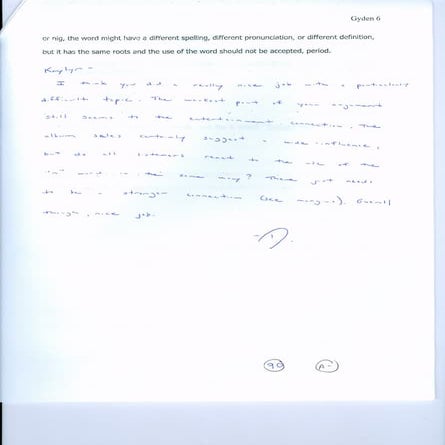 Gyden 6
or nig, the word might have a different spelling, different pronunciation, or different definition,
but it has the same roots and the use of the word should not be accepted, period.
I think you did a really nice job with a particularly
difficult topic. The weakest part of your argument
still seems to be the entertainment connection. The
album sales certainly suggest a wide influence,
but do all listeners react to the use of the
"n" word in the same way? There just needs
to be a stronger connection (see margins). Overall
though, nice job.
90 A-